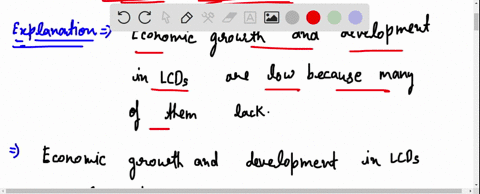 Explanation ⇒ Economic growth and development
in LCDs are low because many
of them lack.
⇒ Economic growth and development in LCDs